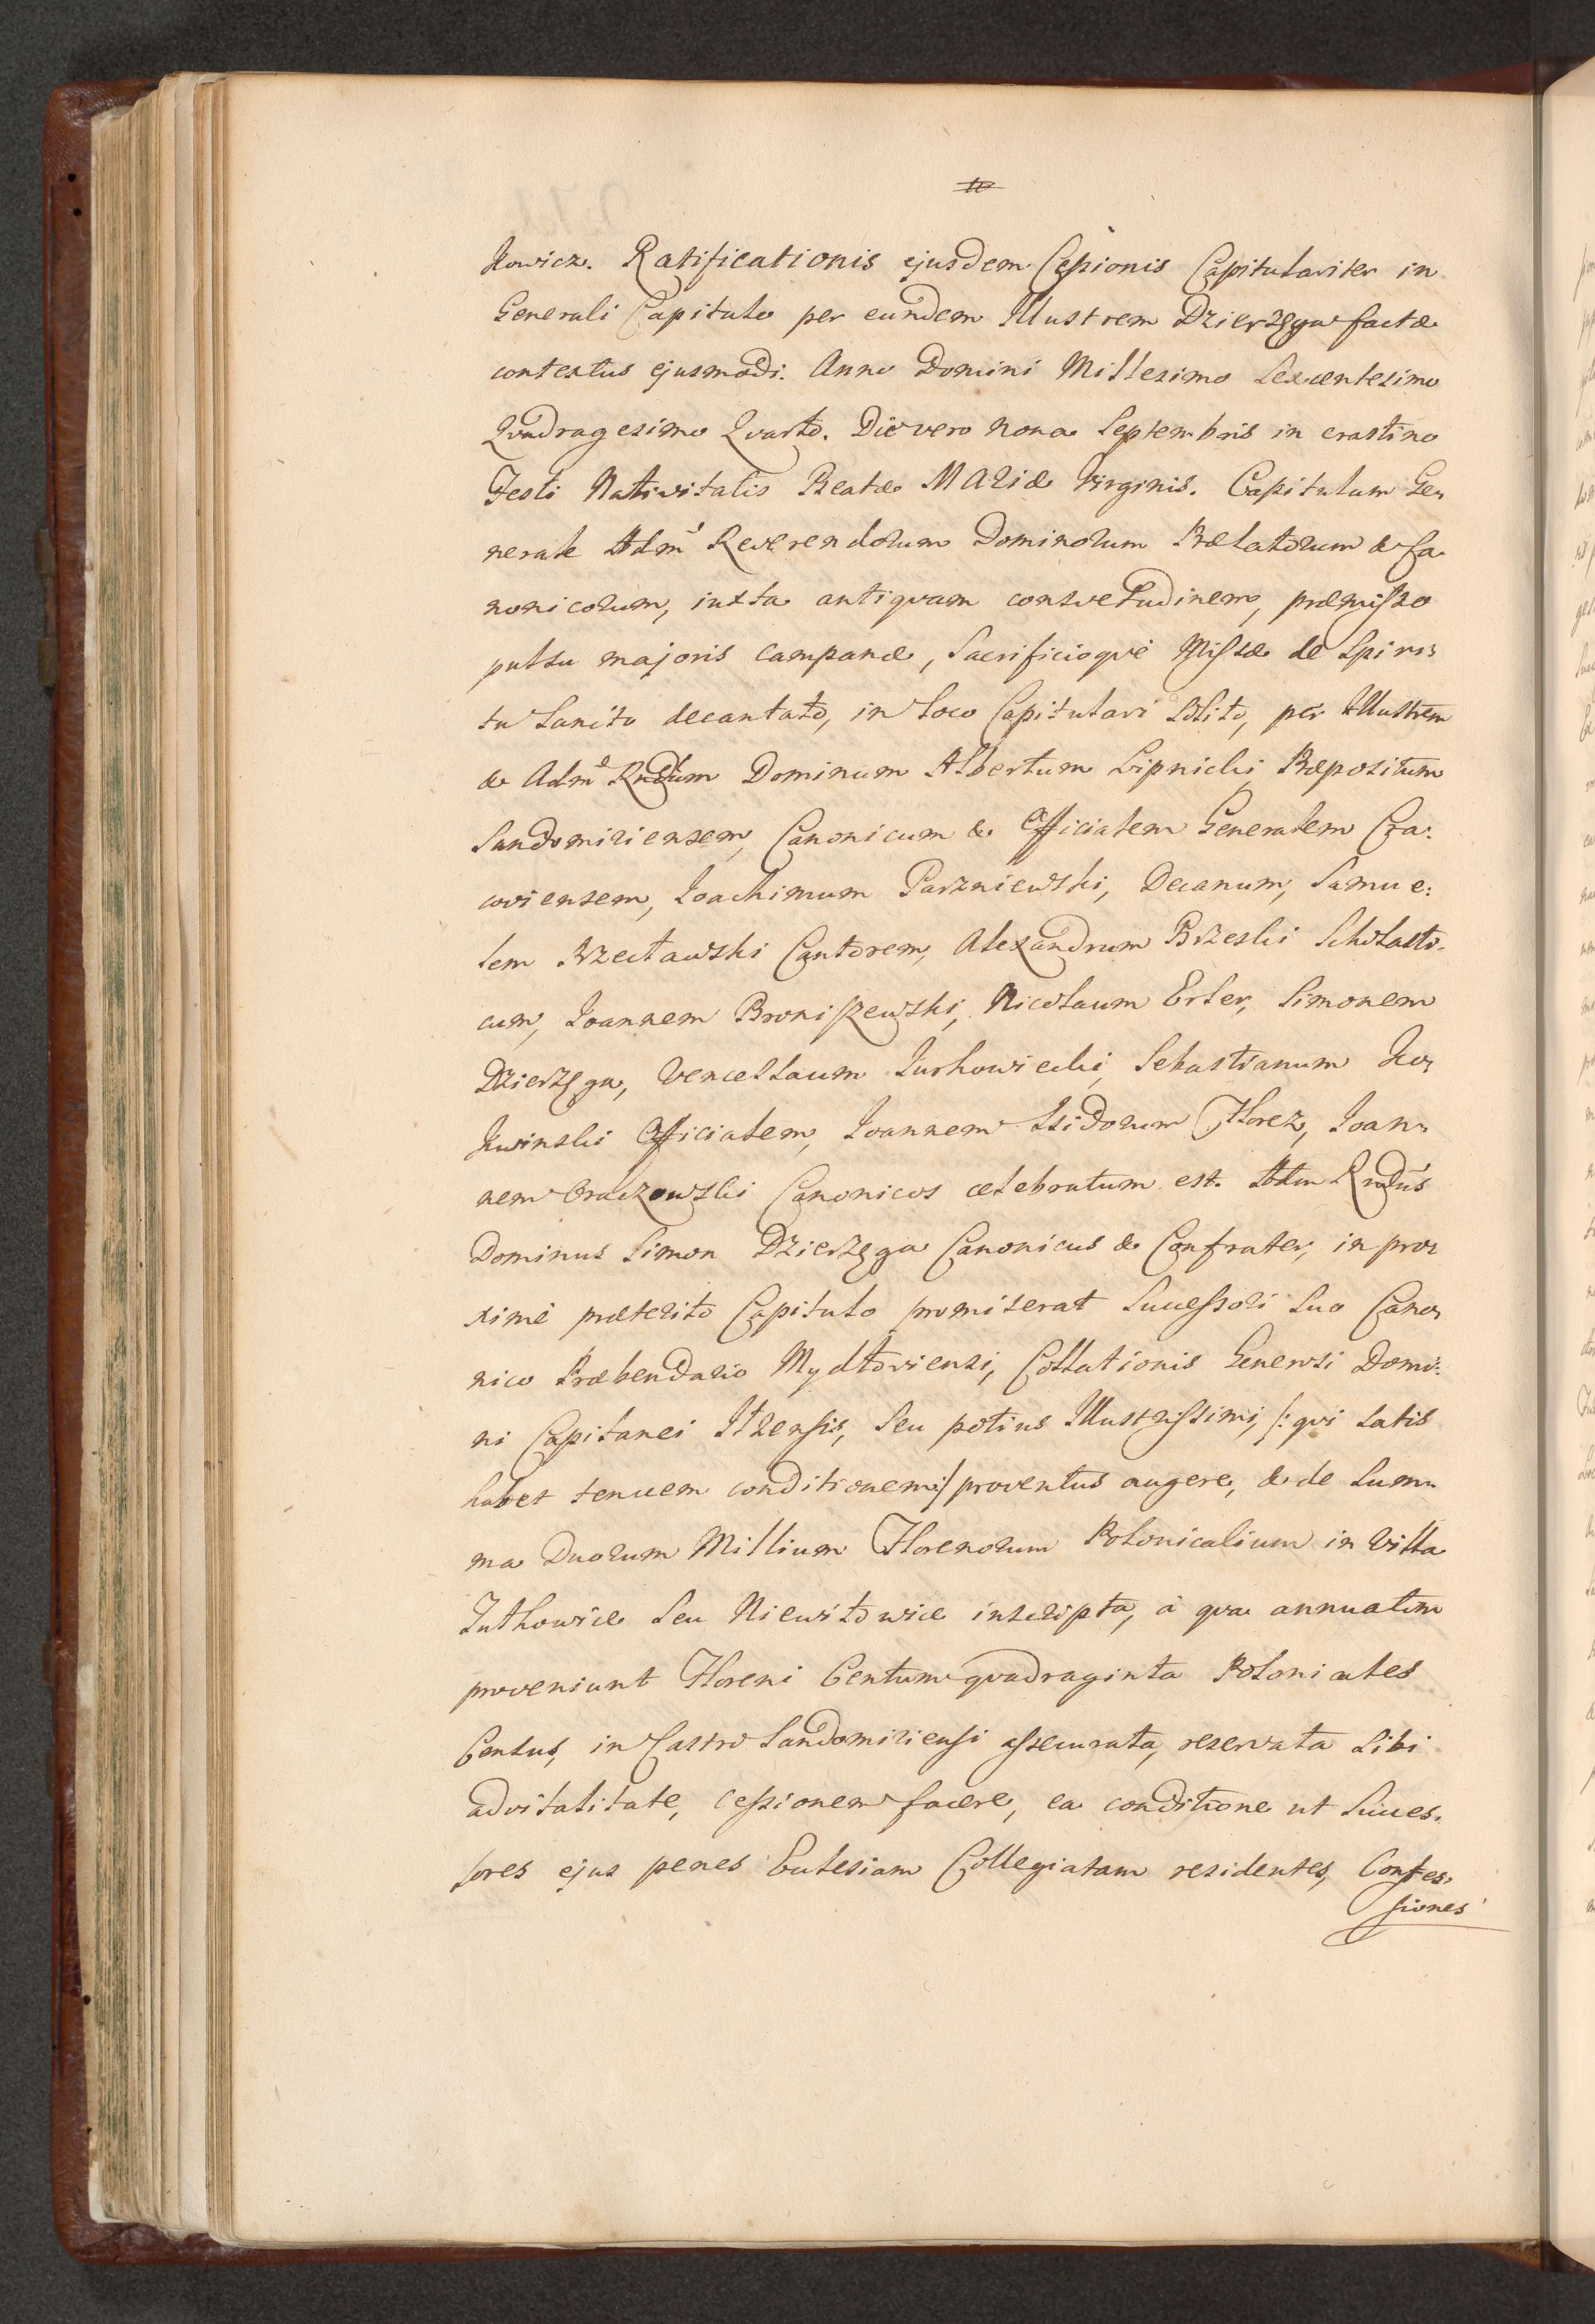 kowicz. Ratificationis ejusdem Cessionis Capitulariter in
Generali Capitulo per eundem Illustrem Dzierzęga factæ
contextus ejusmodi. Anno Domini Millesimo Sexcentesimo
Quadragesimo Quarto. Die vero nona Septembris in crastino
Festi Nativitatis Beatæ MARIÆ Virginis. Capitulum Ge,,
nerale Adm Reverendorum Dominorum Prælatorum & Ca,
nonicorum, iuxta antiquam consvetudinem, præmisso
pulsu majoris campanæ, Sacrificioque Missæ de Spiri,,
tu Sancto decantato, in Loco Capitulari Solito, per Illustrem
& Adm Rndum Dominum Albertum Lipnicki Præpositum
Sandomiriensem, Canonicum & Officialem Generalem Cra:
coviensem, Joachimum Parzniewski, Decanum, Samue:
lem Rzeclawski Cantorem, Alexandrum Brzeski Scholasti-
cum, Joannem Broniszewski, Nicolaum Erler, Simonem
Dzierzęga, Venceslaum Jurkowiecki, Sebastianum Ko,,
kwinski Officialem, Joannem Isidorum Florez, Joan,,
nem Oraczowski Canonicos celebratum est. Adm Rndus
Dominus Simon Dzierzęga Canonicus & Confrater, in pro,,
xime præterito Capitulo promiserat Successori Suo Cano,,
nico Præbendario Mydłoviensi, Collationis Generosi Domi:
ni Capitanei Ilzensis, Seu potius Illustrissimi, /: qui satis
habet tenuem conditionem :/ proventus augere, & de Sum,,
ma Duorum Millium Florenorum Polonicalium in Villa
Jutkowice Seu Niewitowice inscripta, à qva annuatim
proveniunt Floreni Centum qvadraginta Polonicales
Census, in Castro Sandomiriensi assecurata, reservata Sibi
advitalitate, cessionem facere, ea conditione ut Succes,
sores ejus penes Ecclesiam Collegiatam residentes, Confes,
siones